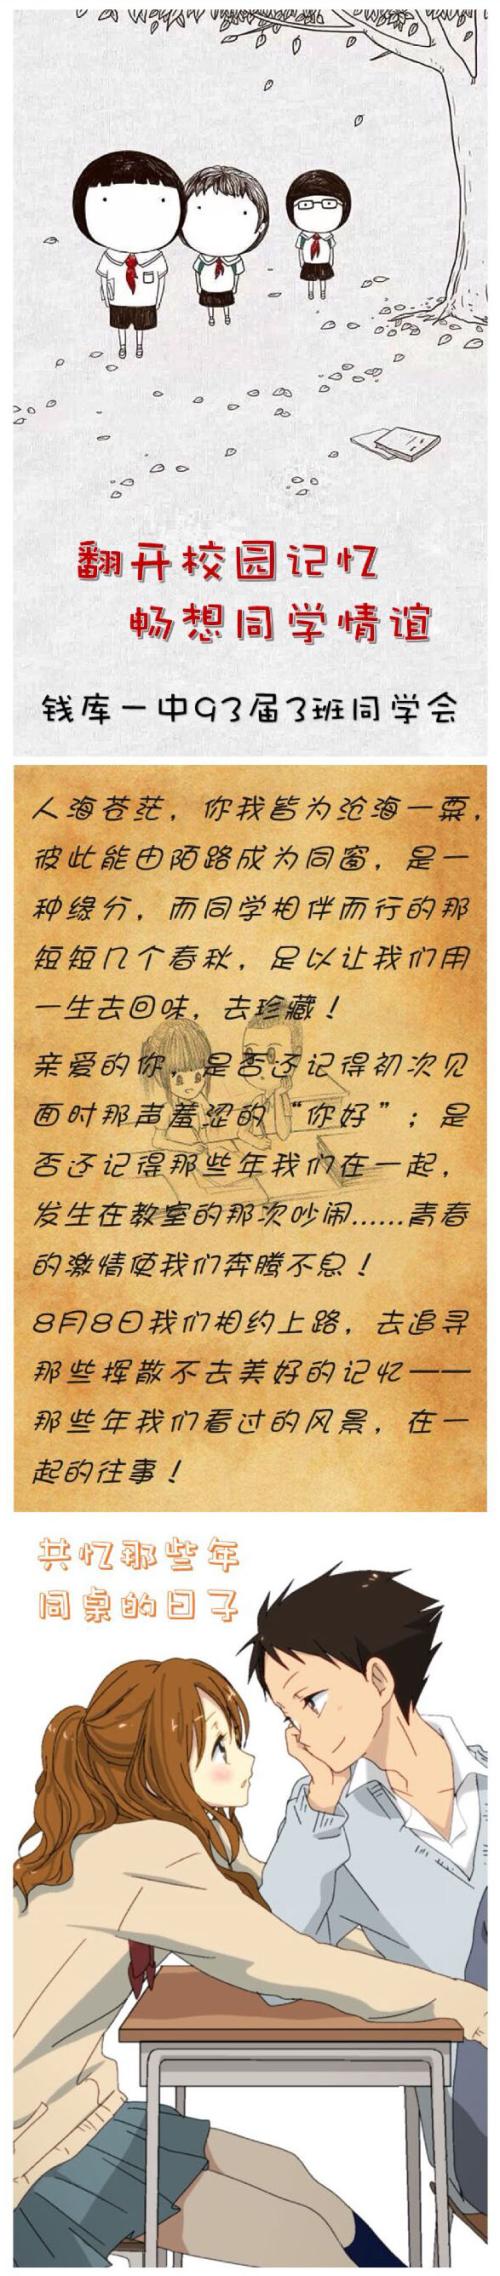 翻开校园记忆
畅想同学情谊
钱库一中93届3班同学会
人海苍茫，你我皆为沧海一粟，
彼此能由陌路成为同窗，是一
种缘分，而同学相伴而行的那
短短几个春秋，足以让我们用
一生去回味，去珍藏！
亲爱的你，是否还记得初次见
面时那声羞涩的“你好”；是
否还记得那些年我们在一起，
发生在教室的那次吵闹……青春
的激情使我们奔腾不息！
8月8日我们相约上路，去追寻
那些挥散不去美好的记忆——
那些年我们看过的风景，在一
起的往事！
共忆那些年
同桌的日子